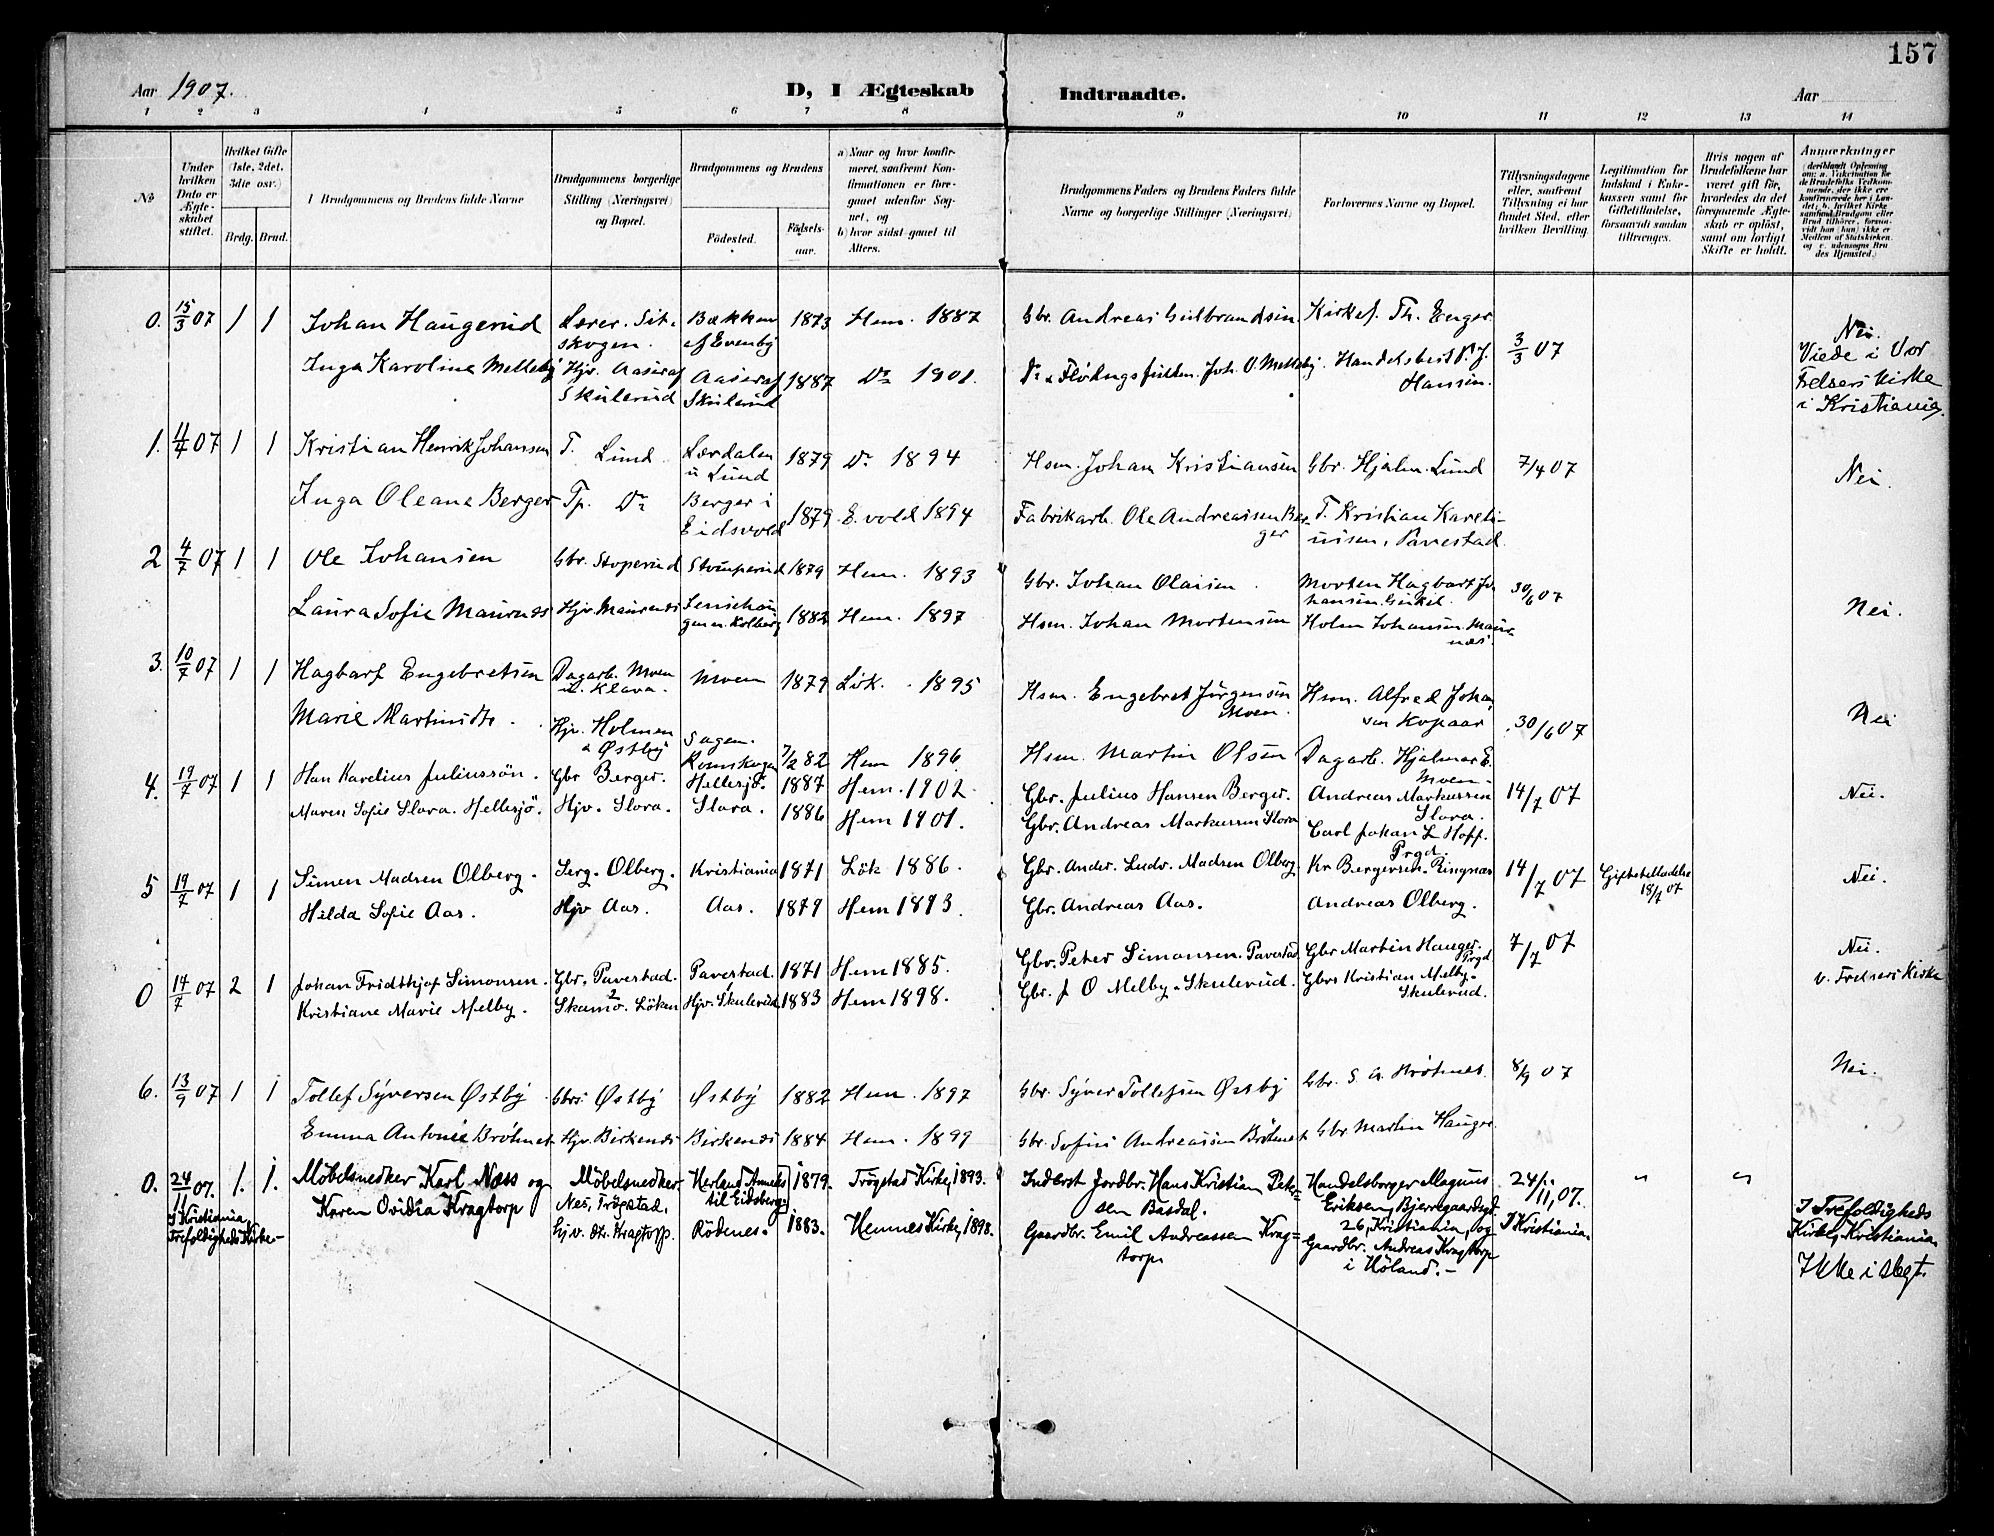 157
Aar 1907.
D, I Ægteskab Indtraadte.
Aar
1 2 3 4 5 6 7 8 9 10 11 12 13 14
No
Under hvilken Dato er Ægteskabet stiftet.
Hvilket Gifte (1ste, 2det, 3die osv.)
Brdg. Brud.
Brudgommens og Brudens fulde Navne
Brudgommens borgerlige Stilling (Næringsvei) og Bopæl.
Brudgommens og Brudens
Fødested. Fødselsaar.
a) Naar og hvor konfirmeret, samt om Konfirmationen er foregaaet udenfor Sognet, og
b) hvor sidst gaaet til Alters.
Brudgommens Faders og Brudens Faders fulde Navne og borgerlige Stillinger (Næringsvei)
Forlovernes Navne og Bopæl.
Tillysningsdagene eller, saafremt Tillysning ei har fundet Sted, efter hvilken Bevilling.
Legitimation for Indskud i Enkekassen samt for Giftetilladelse, forsaavidt saadan tiltrænges.
Hvis nogen af Brudefolkene har været gift før, hvorledes da det foregaaende Ægteskab er opløst, samt om lovligt Skifte er holdt.
Anmærkninger
0. 15/3 07 1 1 Johan Haugerud Lærer. Sit. skogen. Bækken af Evenby 1873 Hem. 1887 Gbr. Andreas Gulbrandsen Kirkes. Th. Enger 3/3 07 Nei. Viede i Vor Frelsers Kirke i Kristiania.
Inga Karoline Melleby Hjv. Aaseraf Skulerud Aaseraf Skulerud 1887 Do 1901. Joh. O. Melleby. Handelsbest. P. J. Hansen.
1. 11/4 07 1 1 Kristian Henrik Johansen T. Lund Lærdalen u Lund 1879 Do 1894 Hsm. Johan Kristiansen Gbr. Hjalm. Lund 7/4 07 Nei.
Inga Oleana Berger Tp. Do Berger i Eidsvold 1879 E.vold 1894 Fabrikarb. Ole Andreassen Berger T. Kristian Karelinsen, Pavestad
2 4/7 07 1 1 Ole Johansen Gbr. Stoperud Stomperud 1879 Hem. 1893 Gbr. Johan Olaisen. Morten Hagbart Johansen. 30/6 07 Nei.
Laura Sofie Maurnes Hjv. Maurenes 1882 Hem. 1897 Hsm. Johan Mortensen Holm Johansen. Maurnæs.
3. 10/7 07 1 1 Hagbart Engebretsen Dagarb. Moen u. Klava. Moen 1879 Løk. 1895 Hsm. Engebret Jørgensen Moen. Hsm. Alfred Johansen Kopaar 30/6 07 Nei
Marie Martinsdtr. Hjv. Holmen u Østby Sagen. Rømskogen 7/2 82 Hem 1896. Hsm. Martin Olsen Dagarb. Hjalmar E. Moen.
4. 19/7 07 1 1 Han Karelius Juliussøn. Gbr Berger. Hellesjø. 1887 Hem. 1902. Gbr. Julius Hansen Berger. Andreas Markussen Slora. 14/7 07 Nei.
Maren Sofie Slora. Hellesjö. Hjv. Slora. Slora. 1886 Hem 1901. Gbr. Andreas Markussen Slora Carl Johan L Hoff. Prgd.
5 19/7 07 1 1 Simen Madsen Olberg. Serg. Olberg. Kristiania 1871 Lök 1886. Gbr. Ander. Ludv. Madsen Olberg. Kr Bergersen. Ringnæs 14/7 07 Giftetilladelse 18/7 07 Nei.
Hilda Sofie Aas. Hjv Aas. Aas. 1879 Hem 1893. Gbr. Andreas Aas. Andreas Olberg.
0 14/7 07 2 1 Johan Fridthjof Simonsen. Gbr. Pavestad. Pavestad. 1871 Hem 1885. Gbr. Peter Simonsen. Pavestad Gbr Martin Hauger. Prgd 7/7 07 Nei. v. Frelsers Kirke
Kristiane Marie Melby. Löken Hjv. Skulerud 1883 Hem 1898. Gbr. J O Melby. Skulerud. Gbrs Kristian Melby. Skulerud.
6. 13/9 07 1 1 Tollef Syversen Østby Gbrs. Østby Østby 1882 Hem. 1897 Gbr. Syver Tollefsen Østby Gbr. S. A. Brøtnes. 8/9 07 Nei.
Emma Antonie Brøtnes Hjv. Birkenes Birkenes 1884 Hem. 1899 Gbr. Sofus Andreassen Gbr Martin Hauger.
0. 24/11 07. 1. 1. Møbelsnedker Karl Næss og Møbelsnedker. Nes, Trögstad. Herland Annex til Eidsberg 1879. Trögstad Kirke, 1893. Inderst Jordbr. Hans Kristian Petersen Basdal. Handelsborger Magnus Eriksen, Bjerregaardsgd. 26, Kristiania, og 24/11, 07. I Kristiania. " " I Trefoldigheds Kirke, Kristiania.
I Kristiania, Trefoldigheds Kirke.- Karen Ovidia Kragtorp Gjv. dtr. Kragtorp. Rödenes. 1883. Hemnes Kirke, 1898. Gaardbr. Emil Andreassen Kragtorp Gaardbr. Andreas Kragtorp i Høland.- Ikke i slegt.